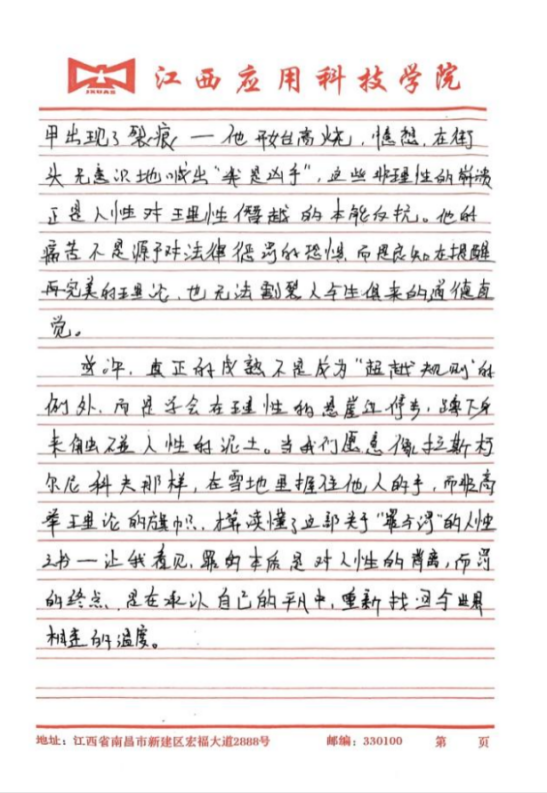 JXUAS
江西应用科技学院
甲出现了裂痕 — 他开始高烧，臆想，在街
头无意识地喊出“我是凶手”，这些非理性的崩溃
正是人性对理性僭越的本能反抗。他的
痛苦不是源于对法律惩罚的恐惧，而是良知在提醒
再完美的理论，也无法割裂人与生俱来的道德直
觉。
或许，真正的成熟不是成为“超越规则”的
例外，而是学会在理性的悬崖边停步，蹲下身
来触碰人性的泥土。当我们愿意像拉斯柯
尔尼科夫那样，在雪地里握住他人的手，而非高
举理论的旗帜，才算读懂了这部关于“罪与罚”的人性
之书—让我看见，罪的本质是对人性的背离，而罚
的终点，是在承认自己的平凡中，重新找回与世界
相连的温度。
地址：江西省南昌市新建区宏福大道2888号 邮编：330100 第 页